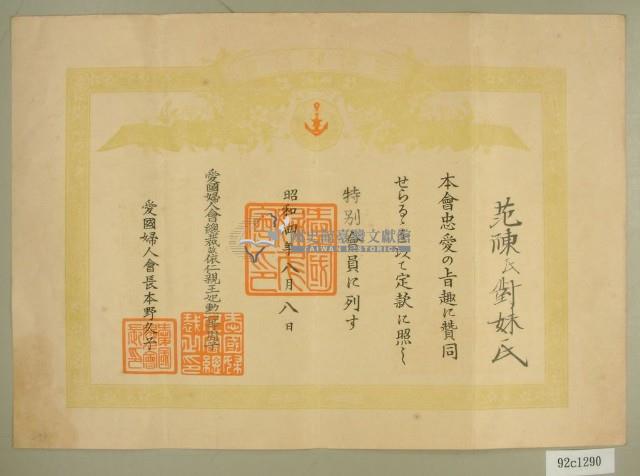 范陳氏對妹氏
本會忠愛の旨趣に賛同
せらるゝ因て定款に照し
特別會員に列す
昭和四年八月八日
愛國婦人會總裁故依仁親王妃勳一等周子
愛國婦人會長本野久子
國史館臺灣文獻館
TAIWAN HISTORICA
92c1290